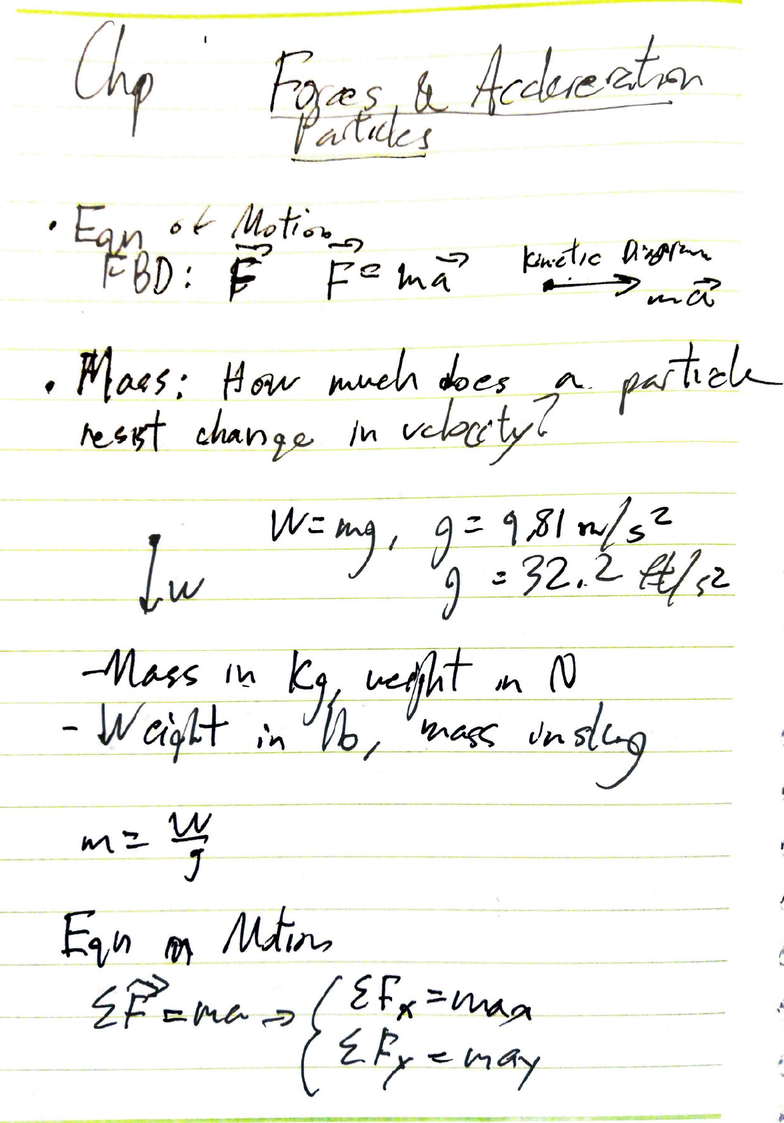 Chp Forces & Acceleration
Particles
• Eqn of Motion
FBD: F⃗ F⃗ = ma⃗ Kinetic Diagram
ma⃗
• Mass: How much does a particle
resist change in velocity?
W=mg, g = 9.81 m/s²
↓W g = 32.2 ft/s²
-Mass in Kg, weight in N
- Weight in lb, mass in slug
m = W/g
Eqn Motion
ΣF⃗ = ma ⇒ { ΣFx = max
ΣFy = may